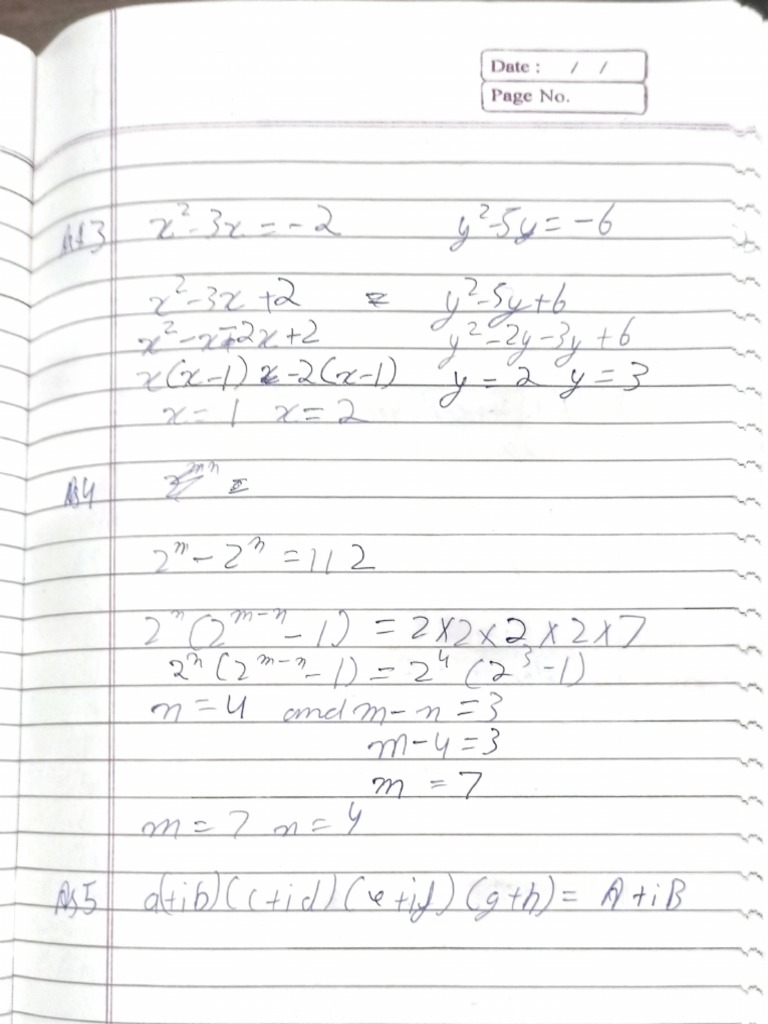 Date : / /
Page No.
x² - 3x = -2 y² - 5y = -6
x² - 3x + 2 = y² - 5y + 6
x² - x - 2x + 2 y² - 2y - 3y + 6
x(x-1) - 2(x-1) y = 2 y = 3
x = 1 x = 2
As4
=
2ᵐ - 2ⁿ = 112
2ⁿ(2ᵐ⁻ⁿ - 1) = 2×2×2×2×7
2ⁿ(2ᵐ⁻ⁿ - 1) = 2⁴(2³ - 1)
n = 4 and m - n = 3
m - 4 = 3
m = 7
m = 7 n = 4
As5 a+ib)(c+id)(e+if)(g+h) = A+iB